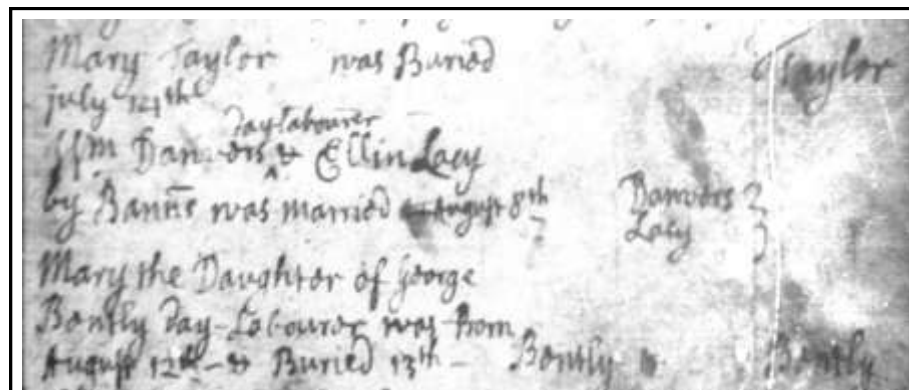 Mary Taylor was Buried Taylor
july 14th
day Labourer
Wm Danvers & Ellin Lacy
by Banns was married August 8th Danvers
Lacy
Mary the Daughter of George
Bently day-Labourer was born
August 12th - & Buried 13th - Bently Bently